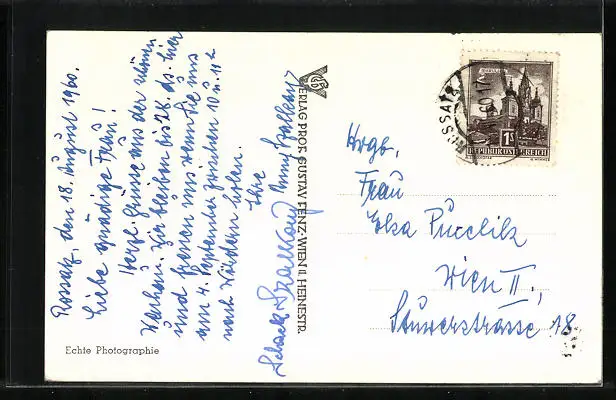 Rossatz, den 18. August 1960.
Liebe gnädige Frau!
Herzl. Grüsse aus der schönen
Wachau. Wir bleiben bis 28. ds. hier
und freuen uns wenn Sie uns
am 4. September zwischen 10 u. 11 h
nach Wördern holen.
Ihre
Anny
VERLAG PROF. GUSTAV FENZ·WIEN II. HEINESTR.
Echte Photographie
MARIAZELL
1S
REPUBLIK ÖSTERREICH
ROSSATZ
Hrgb.
Frau
Elsa
Wien II.,
Stuwerstrasse 18